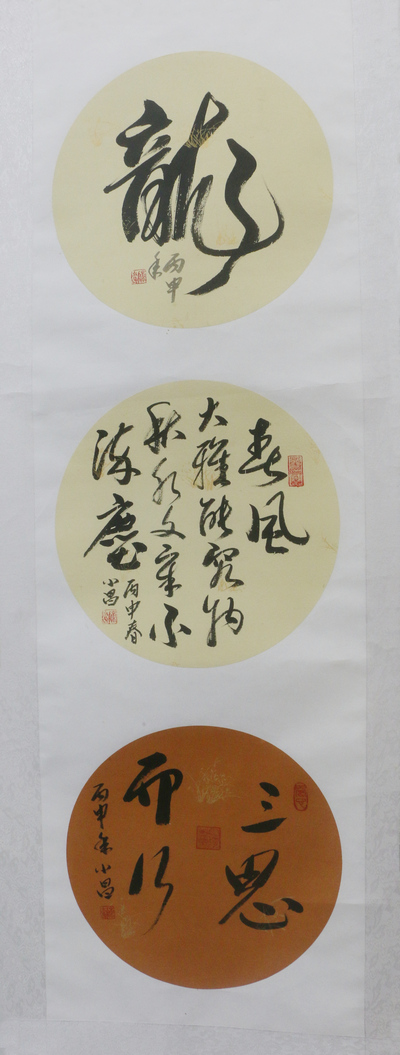 龍
丙申
春風
大雅能容物
秋水文章不
染塵
丙申春
小昌
三思
而行
丙申年小昌